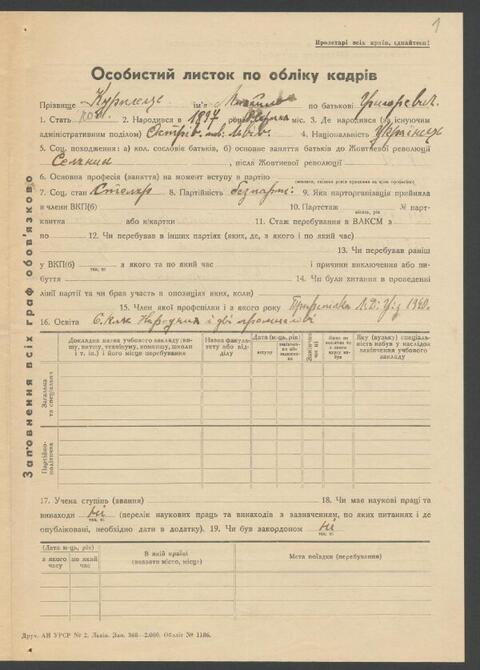 1
Пролетарі всіх країн, єднайтеся!
Особистий листок по обліку кадрів
Прізвище ім'я по батькові Григорович.
1. Стать 2. Народився в 1897 міс. 3. Де народився (за існуючим
адміністративним поділом) 4. Національність Українець
5. Соц. походження: а) кол. сословіє батьків, б) основне заняття батьків до Жовтневої революції
Селянин, після Жовтневої революції
6. Основна професія (заняття) на момент вступу в партію
7. Соц. стан Столяр 8. Партійність безпарт. 9. Яка парторганізація прийняла
в члени ВКП(б) 10. Партстаж № парт-
квитка або к/картки 11. Стаж перебування в ВЛКСМ з
по 12. Чи перебував в інших партіях (яких, де, з якого і по який час)
13. Чи перебував раніш
у ВКП(б) з якого та по який час і причини виключення або ви-
буття 14. Чи були хитання в проведенні
лінії партії та чи брав участь в опозиціях яких, коли)
15. Член якої профспілки і з якого року 1940.
16. Освіта 6. Клас Народних і дві промислові
Докладна назва учбового закладу (ви-
шу, втузу, технікуму, комвишу, школи
і т. ін.) і його місце перебування
Назва факуль-
тету або від-
ділу
Дата (м-ць, рік)
вступу
Яку (вузьку) спеціаль-
ність набув у наслідок
закінчення учбового
закладу
Загальна
та
спеціальна
Партійно-
політична
Заповнення всіх граф обов'язково
17. Учена ступінь (звання) 18. Чи має наукові праці та
винаходи ні (перелік наукових праць та винаходів з зазначенням, по яких питаннях і де
так, ні
опубліковані, необхідно дати в додатку). 19. Чи був закордоном ні
так, ні
(Дата м-ць, рік)
з якого часу
по який час
В якій країні
(вказати місто, місце)
Мета поїздки (перебування)
Друк. АН УРСР № 2. Львів. Зам. 360—2.000. Обліт № 1186.